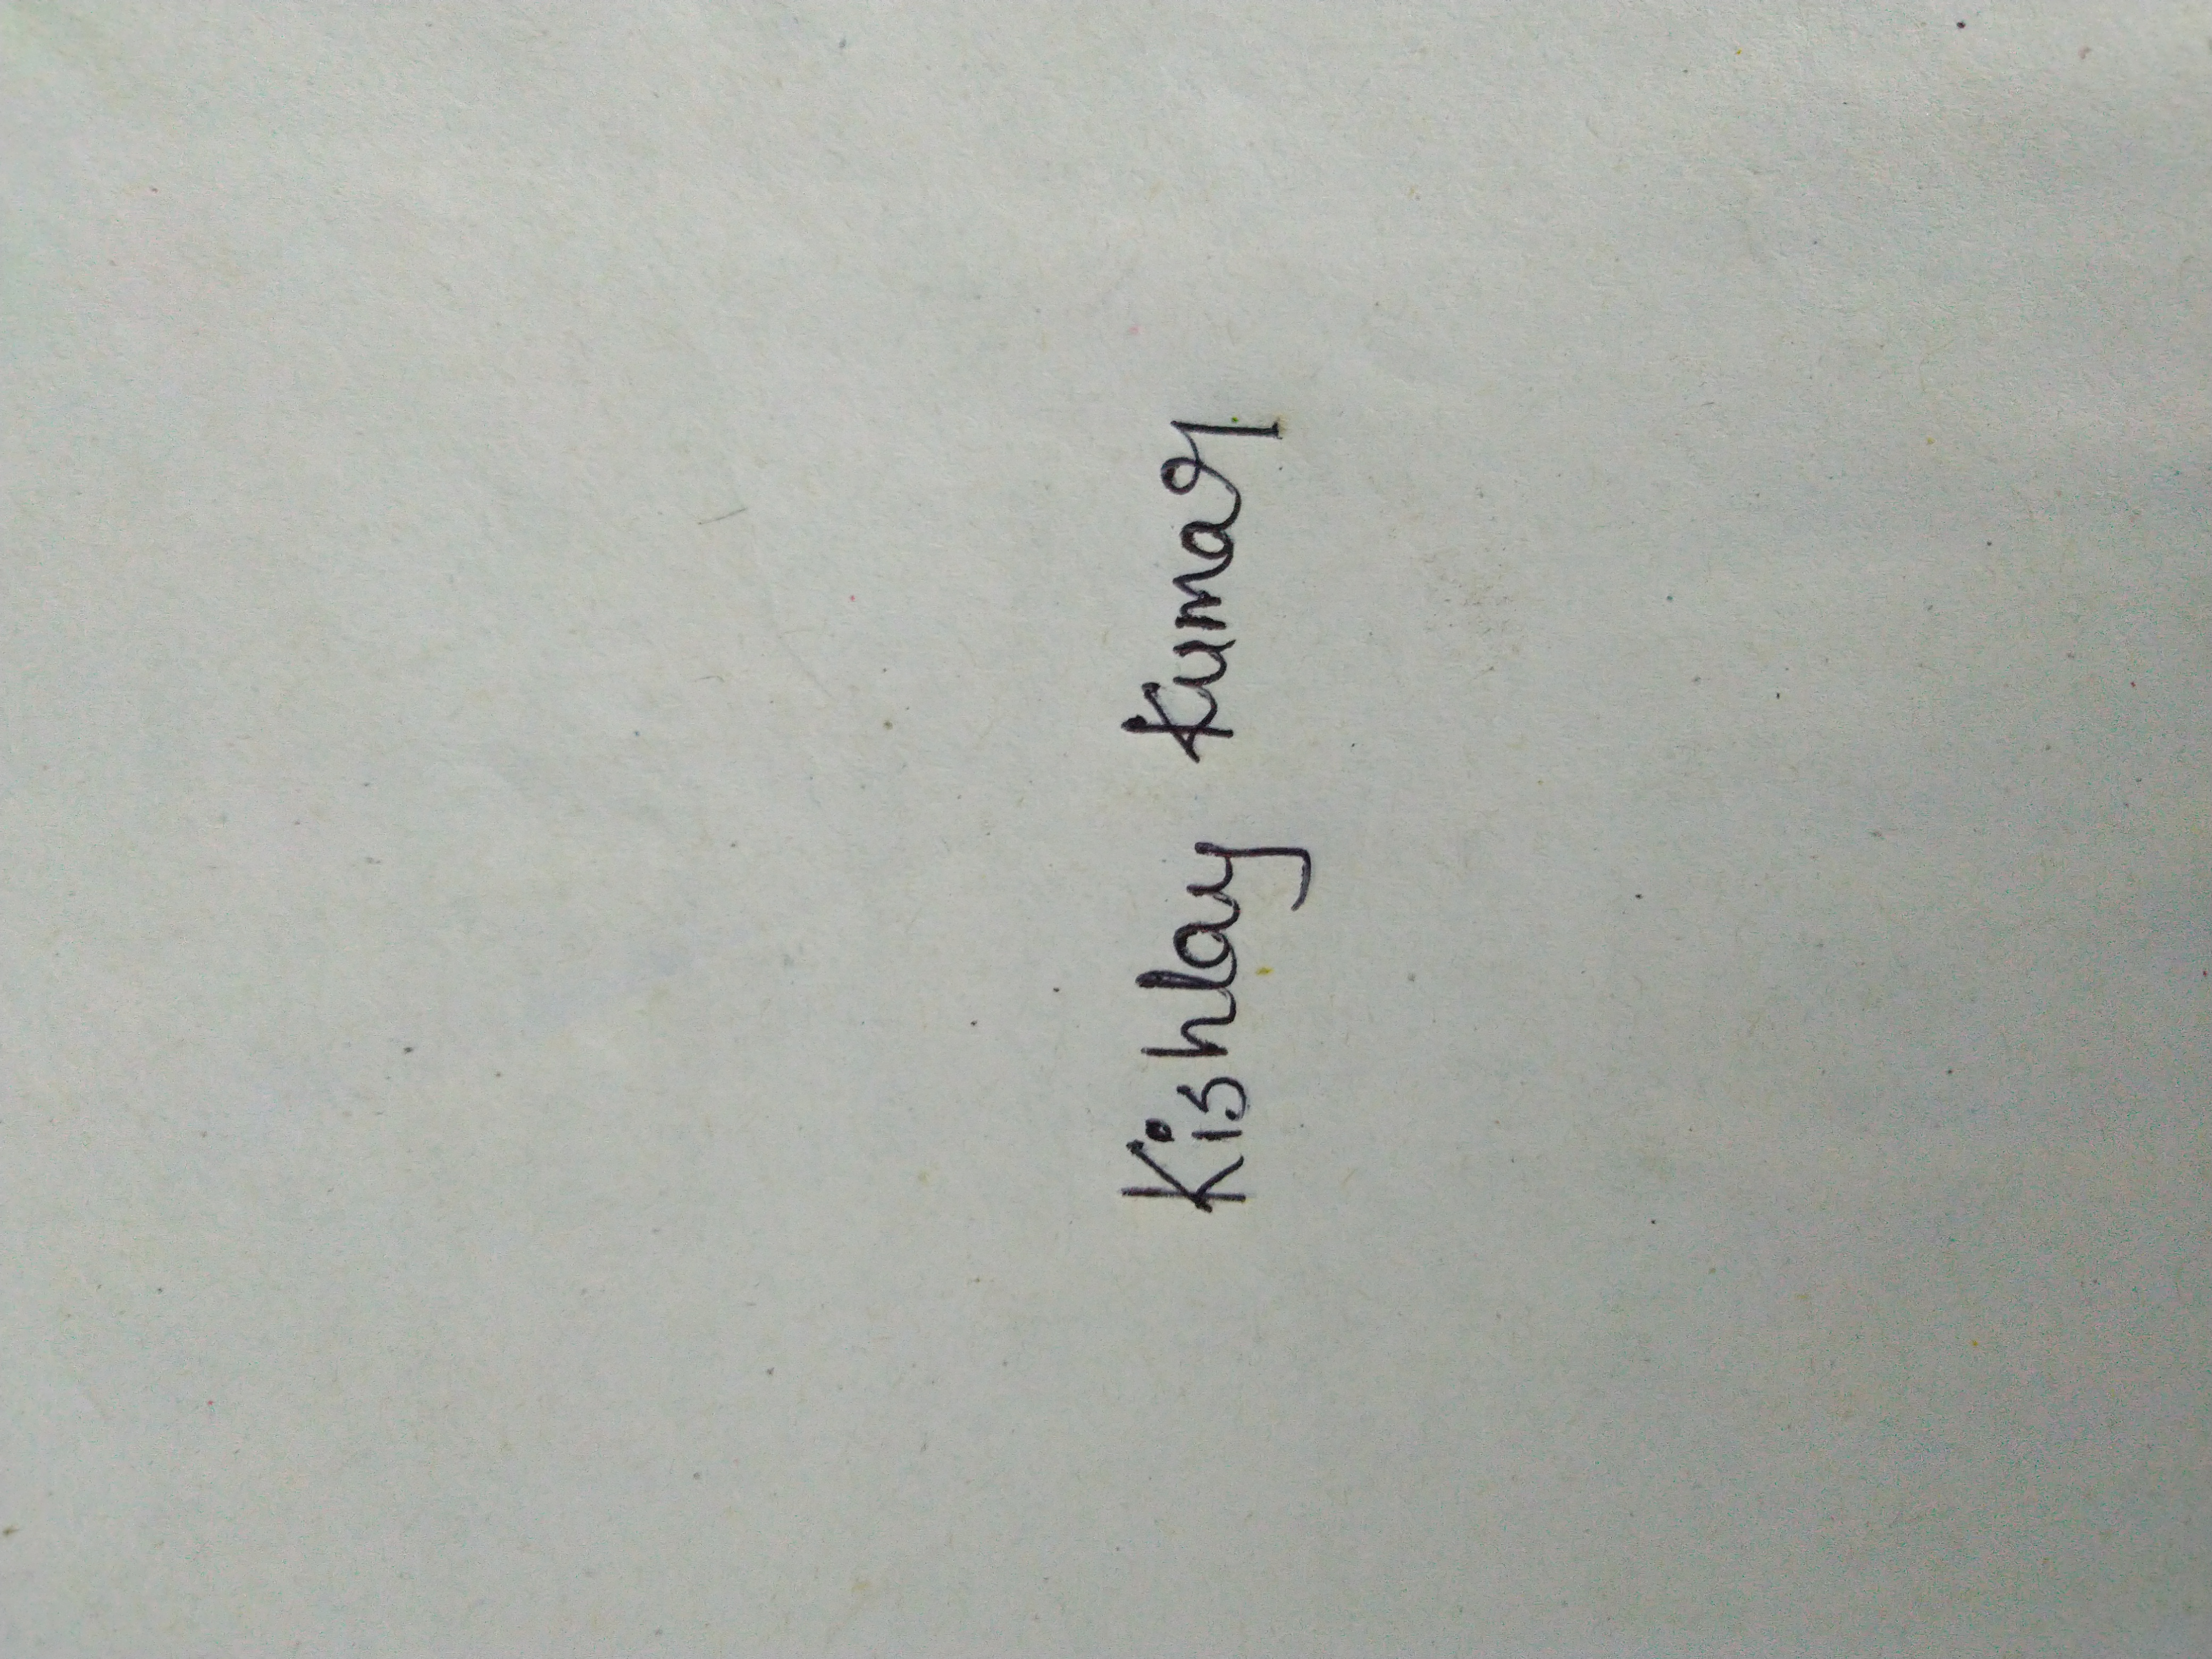 Kishlay Kumar